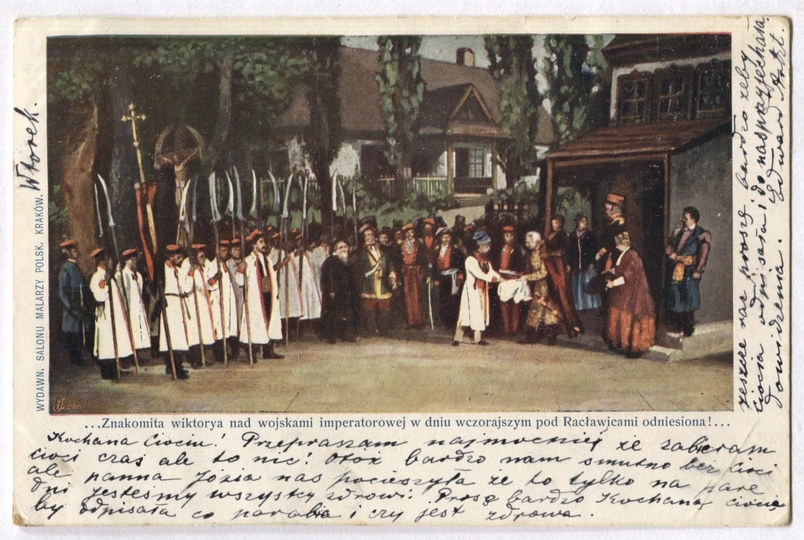 Wtorek.
WYDAWN. SALONU MALARZY POLSK. KRAKÓW.
...Znakomita wiktorya nad wojskami imperatorowej w dniu wczorajszym pod Racławicami odniesiona!...
Kochana Ciociu! Przepraszam najmocniej że zabieram
cioci czas ale to nic! Otóż bardzo nam smutno bez cioci
ale panna Józia nas pocieszyła że to tylko na parę
dni jesteśmy wszyscy zdrowi. Proszę bardzo Kochaną ciocię
by odpisała co porabia i czy jest zdrowa.
jeszcze raz proszę bardzo żeby
ciocia odpisała i do nas przyjechała
Dowidzenia. Edward